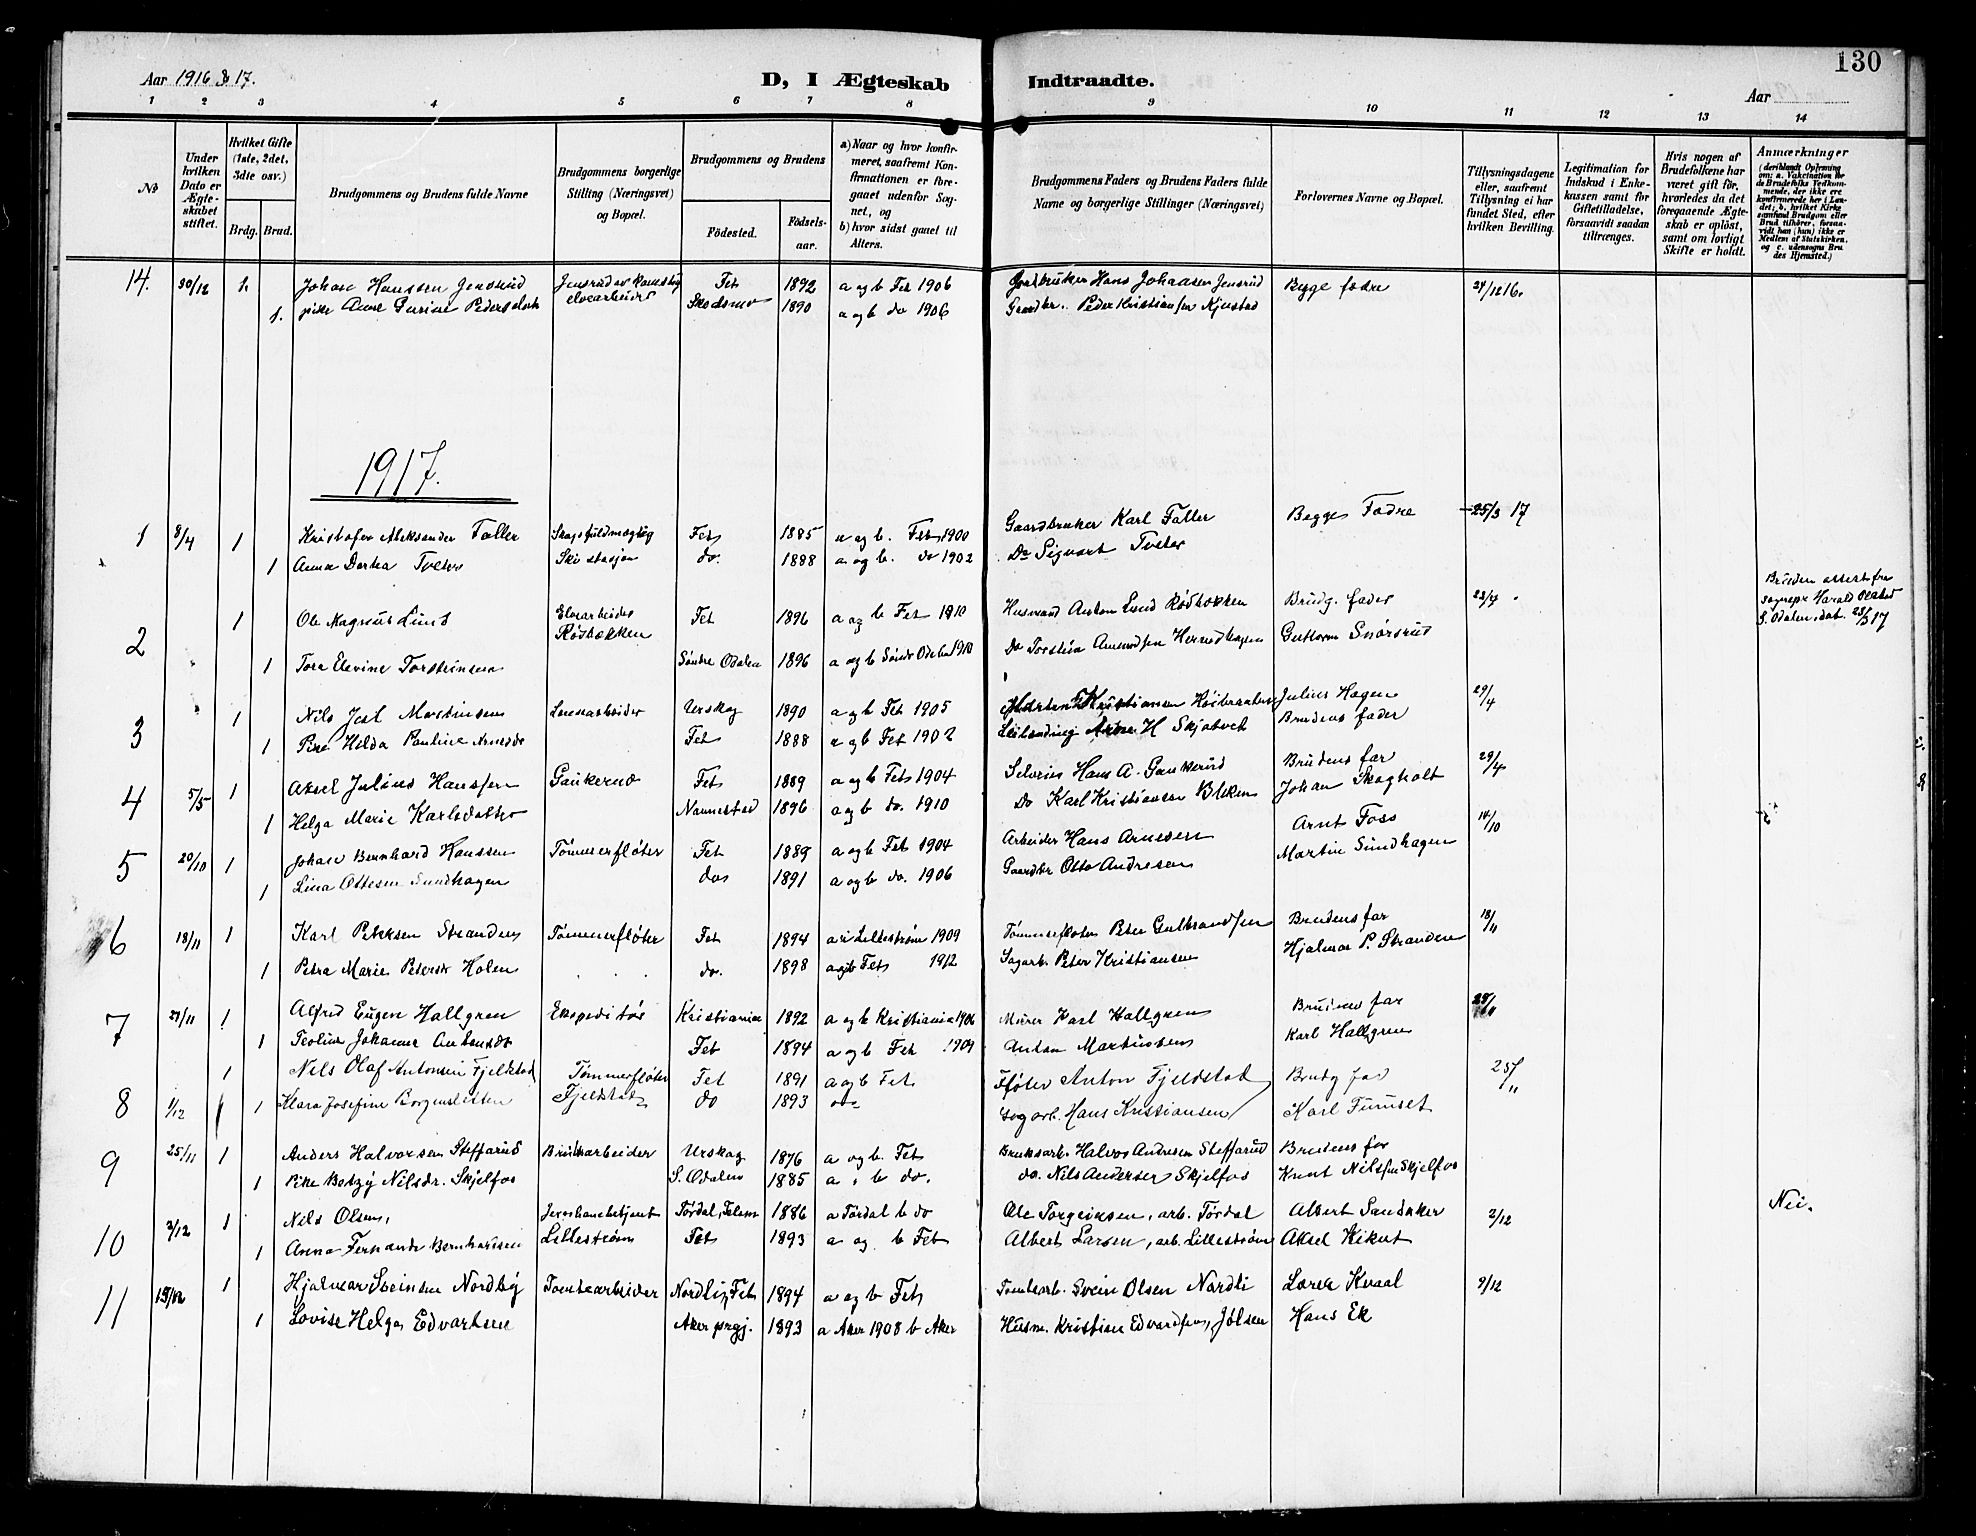 130
Aar 1916 & 17.
D, I Ægteskab Indtraadte.
Aar
1 2 3 4 5 6 7 8 9 10 11 12 13 14
No
Under hvilken Dato er Ægteskabet stiftet.
Hvilket Gifte (1ste, 2det, 3die osv.)
Brdg. Brud.
Brudgommens og Brudens fulde Navne
Brudgommens borgerlige Stilling (Næringsvei) og Bopæl.
Brudgommens og Brudens
Fødested.
Fødselsaar.
a) Naar og hvor konfirmeret, saafremt Konfirmationen er foregaaet udenfor Sognet, og
b) hvor sidst gaaet til Alters.
Brudgommens Faders og Brudens Faders fulde Navne og borgerlige Stillinger (Næringsvei)
Forlovernes Navne og Bopæl.
Tillysningsdagene eller, saafremt Tillysning ei har fundet Sted, efter hvilken Bevilling.
Legitimation for Indskud i Enkekassen samt for Giftetilladelse, forsaavidt saadan tiltrænges.
Hvis nogen af Brudefolkene har været gift før, hvorledes da det foregaaende Ægteskab er opløst, samt om lovligt Skifte er holdt.
Anmærkninger (deriblandt Oplysning om: a. Vakcination for de Brudefolks Vedkommende, der ikke ere konfirmerede her i Landet; b. hvilket Kirkesamfund Brudgom eller Brud tilhører, forsaavidt han (hun) ikke er Medlem af Statskirken, og c. udensogns Brudes Hjemsted.)
14. 30/12 2. Johan Hanssen Jensrud Fet 1892 a og b Fet 1906 Hans Johansen Jensrud Begge fædre 24/12 16.
1. pike Anne Gurine Pedersdatr elvearbeider Skedsmo 1890 a og b do 1906 Gaardbr. Peder Kristiansen Njustad
1917.
1 8/4 1 Kristofer Aleksander Faller Skogsfuldmægtig Fet 1885 a og b. Fet 1900 Gaardbruker Karl Faller Begges Fædre 25/3 17
1 Anna Dortea Tveter Ski stasjon do. 1888 a og b. do 1902 Do Sigvart Tveter
2 1 Ole Magnus Lund Elvearbeider Rødbækken Fet 1896 a og b Fet 1910 Husmand Anton Lund Rødbækken Brudg. fader 23/4
Bruden attest fra sognepr Harald S. Odalen, dat. 23/3 17
1 Tora Elevine Torsteinsen Søndre Odalen 1896 a og b Søndr Odalen 1910 Do Torstein Amundsen Guttorm Snørsrud
3 1 Nils Joel Martinsen Lensearbeider Urskog 1890 a og b Fet 1905 Kristiansen Julius Hagen 29/4
1 Pike Hilda Pauline Arnesdr Fet 1888 a og b Fet 1902 Arne H Skjatvet Brudens fader
4 5/5 1 Aksel Julius Hanssen Gaukerud Fet 1889 a og b Fet 1904 Selveier Hans A. Gaukerud Brudens far 29/4
1 Helga Marie Karlsdatter Nannestad 1896 a og b do. 1910 Do Karl Kristiansen Bleken Johan Skogholt
5 20/10 1 Johan Bernhard Hanssen Tømmerfløter Fet 1889 a og b Fet 1904 Arbeider Hans Arnesen Arnt Foss 14/10
1 Lina Ottesen Sundhagen do 1891 a og b do. 1906 Gaardbr Otto Andresen Martin Sundhagen
6 18/11 1 Karl Petersen Stranden Tømmerfløter Fet 1894 a i Lillestrøm 1909 Tømmerfløter Peter Gulbrandsen Brudens far 18/11
1 Petra Marie Petersdr Holen do. 1898 a og b Fet 1912 Sagarb. Peter Kristiansen Hjalmar P. Stranden
7 21/11 1 Alfred Eugen Hallgren Ekspeditør Kristiania 1892 a og b Kristiania 1906 Murer Karl Hallgren Brudens far
1 Teoline Johanne Antonsdr Fet 1894 a og b Fet 1909 Anton Martinsen Karl Hallgren
8 1/12 1 Nils Olaf Antonsen Fjeldstad Tømmerfløter Fjeldstad Fet 1891 a og b Fet Fløter Anton Fjeldstad Brudg far 25/11
1 Klara Josefine Borgensletten do 1893 Sagarb. Hans Kristiansen Karl Furuset
9 25/11 1 Anders Halvorsen Steffarud Bruksarbeider Urskog 1876 a og b Fet Bruksarb. Halvor Andersen Steffarud Brudens far
1 Pike Betzy Nilsdr. Skjelfos S. Odalen 1885 a " b do. do. Nils Andersen Skjelfos Knut Nilssen Skjelfos
10 2/12 1 Nils Olsen, Jernbanebetjent Lillestrøm Tørdal, Telem 1886 a Tørdal b do Ole Torgeirsen, arb. Tørdal Albert Sandaker 2/12 Nei.
1 Anna Fernanda Bernhardsen Fet 1893 a og b Fet Albert Larsen, arb. Lillestrøm Aksel Kikut
11 15/12 1 Hjalmar Sveinsen Nordby Tomtearbeider Nordli, Fet 1894 a og b Fet Tomtearb. Svein Olsen Nordli Lorentz Kvaal 9/12
1 Lovise Helga Edvardsen Aker prgj. 1893 a Aker 1908 b Aker Husm. Kristian Edvardsen, Jølsen Hans Ek